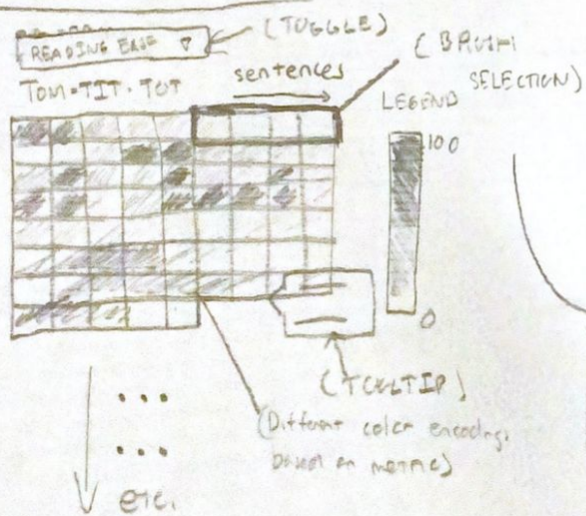 READING EASE ▽
(TOGGLE)
(BRUSH
SELECTION)
TOM·TIT·TOT
sentences
LEGEND
100
0
(TOOLTIP)
(Different color encodings
based on metric)
...
...
etc.